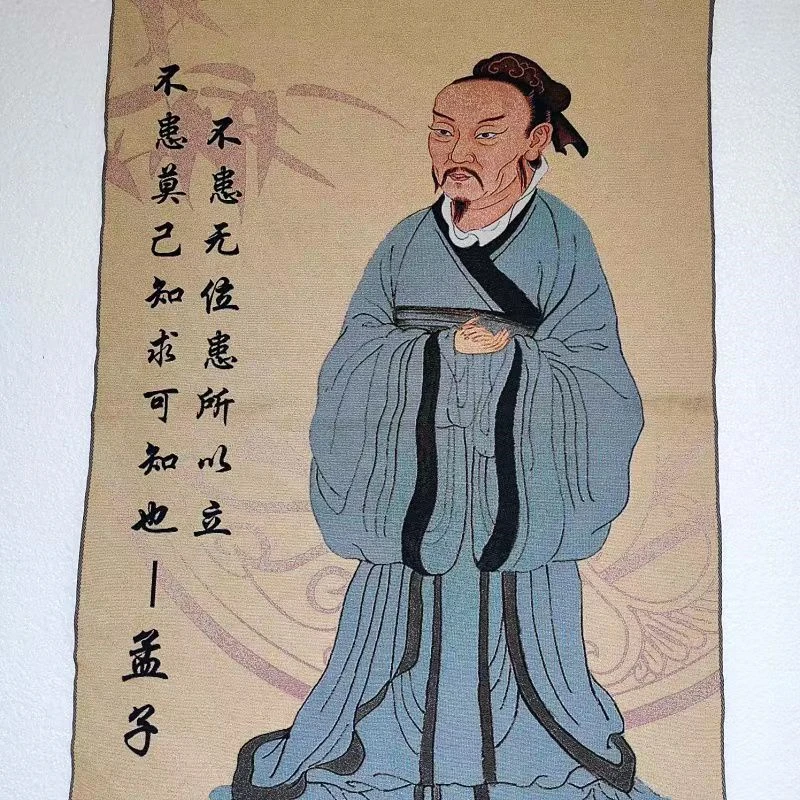 不患无位患所以立
不患莫己知求可知也—孟子